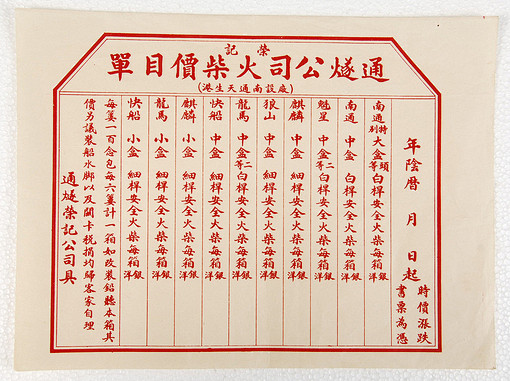 榮記
通燧公司火柴價目單
(廠設南通天生港)
年陰曆　月　日起
時價漲跌
書票為憑
南通特別大盒頭等白桿安全火柴每箱銀洋
南通　中盒　白桿安全火柴每箱銀洋
魁星　中盒二等白桿安全火柴每箱銀洋
麒麟　中盒　細桿安全火柴每箱銀洋
狼山　中盒　細桿安全火柴每箱銀洋
龍馬　中盒二等白桿安全火柴每箱銀洋
快船　中盒　細桿安全火柴每箱銀洋
麒麟　小盒　細桿安全火柴每箱銀洋
龍馬　小盒　細桿安全火柴每箱銀洋
快船　小盒　細桿安全火柴每箱銀洋
每簍一百念包每六簍計一箱如改裝鉛聽木箱其
價另議裝船水脚以及關卡稅捐均歸客家自理
通燧榮記公司具